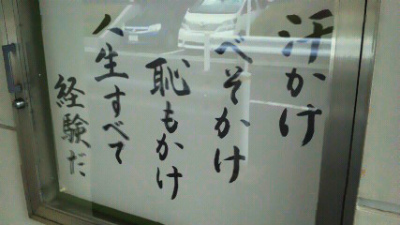 汗かけ
べそかけ
恥もかけ
人生すべて
経験だ